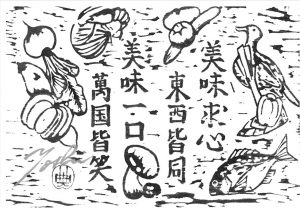 美味求心
東西皆同
美味一口
萬国皆笑